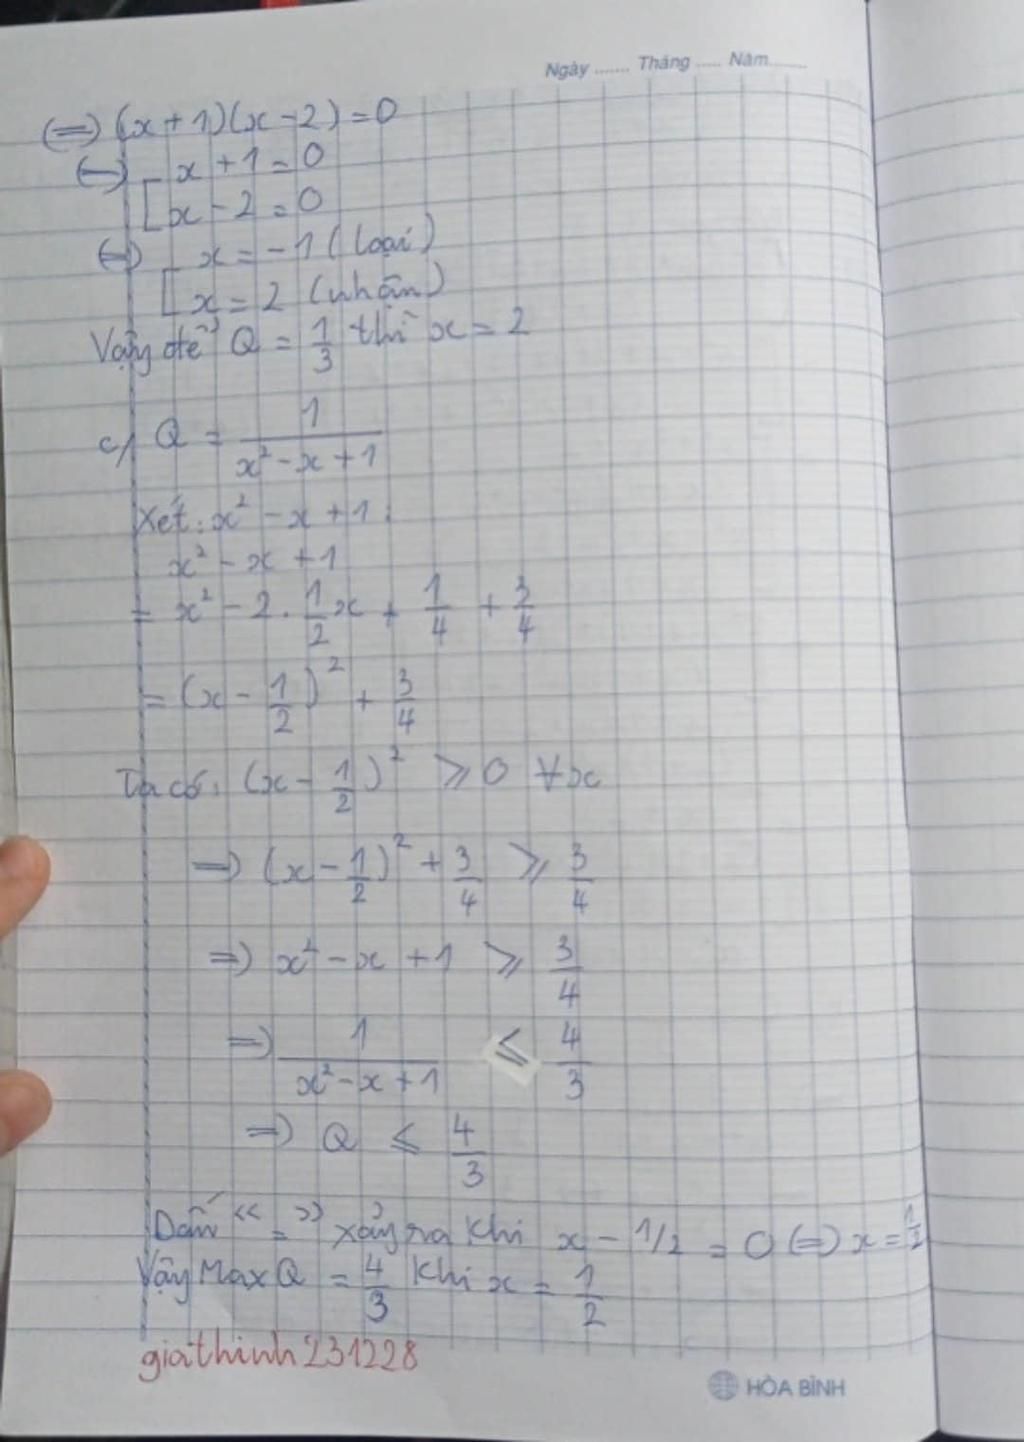 Ngày ....... Tháng ..... Năm.......
(=) (x + 1)(x - 2) = 0
(=) [ x + 1 = 0
[ x - 2 = 0
(=) x = -1 (loại)
[ x = 2 (nhận)
Vậy để Q = 1/3 thì x = 2
c/ Q = 1/(x² - x + 1)
Xét: x² - x + 1
x² - x + 1
= x² - 2 . 1/2 x + 1/4 + 3/4
= (x - 1/2)² + 3/4
Ta có: (x - 1/2)² ⩾ 0 ∀x
=) (x - 1/2)² + 3/4 ⩾ 3/4
=) x² - x + 1 ⩾ 3/4
=) 1/(x² - x + 1) ⩽ 4/3
=) Q ⩽ 4/3
Dấu “ = ” xảy ra khi x - 1/2 = 0 (=) x = 1/2
Vậy Max Q = 4/3 khi x = 1/2
giathinh231228
HÒA BÌNH